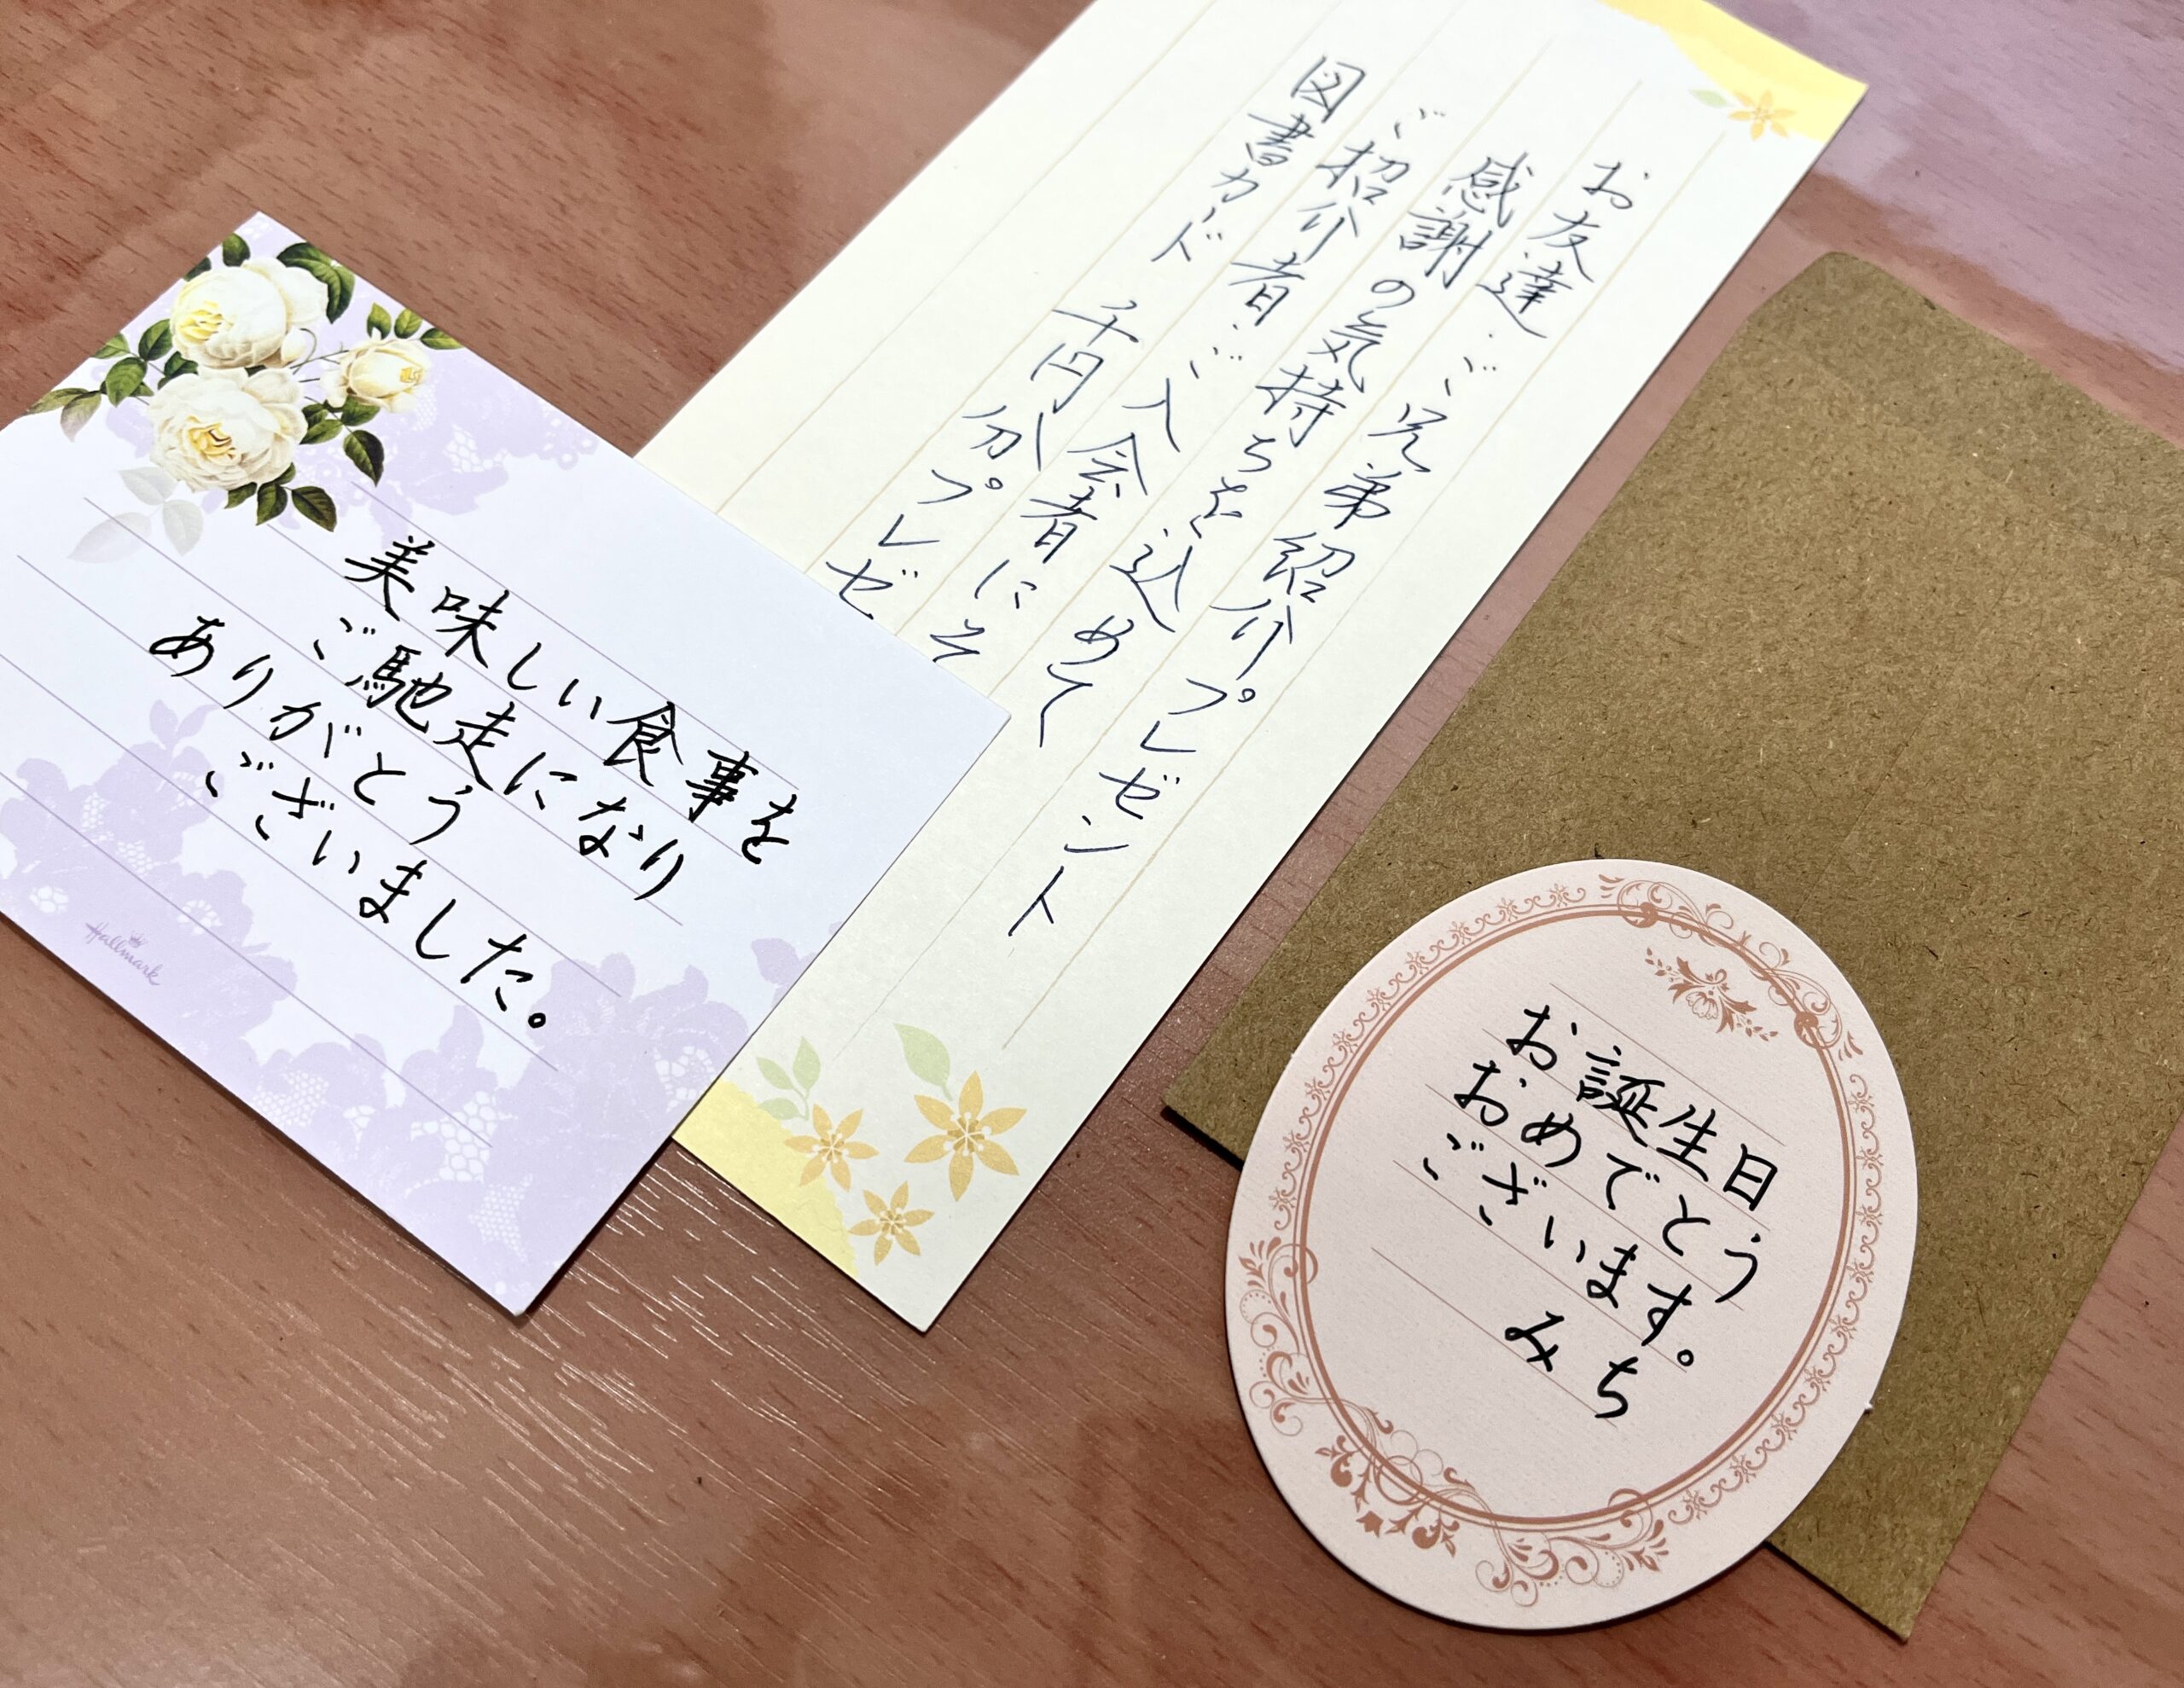 美味しい食事を
ご馳走になり
ありがとう
ございました。
Hallmark
お友達・ご兄弟紹介プレゼント
感謝の気持ちを込めて
ご招介者・ご入会者にそ
図書カード 千円分プレゼ
お誕生日
おめでとう
ございます。
みち